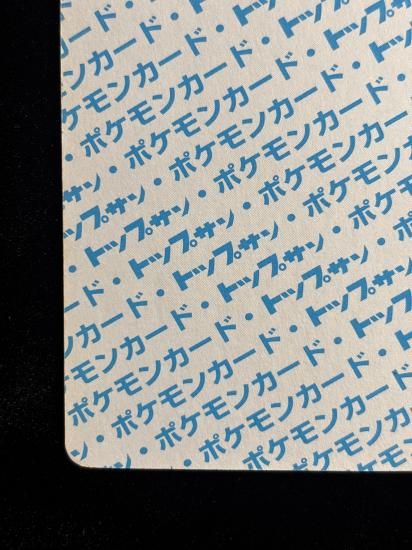 ンカード・
モンカード・トップサン
ポケモンカード・トップサン・
・ポケモンカード・トップサン
サン・ポケモンカード・
トップサン・ポケモンカード
・トップサン・ポケモンカード
ド・トップサン・ポケモン
カード・トップサン・ポケ
モンカード・トップサン・
ケモンカード・トップサン
ン・ポケモンカード・トップ
・ポケモンカード・
ポケモンカード
ポケモン